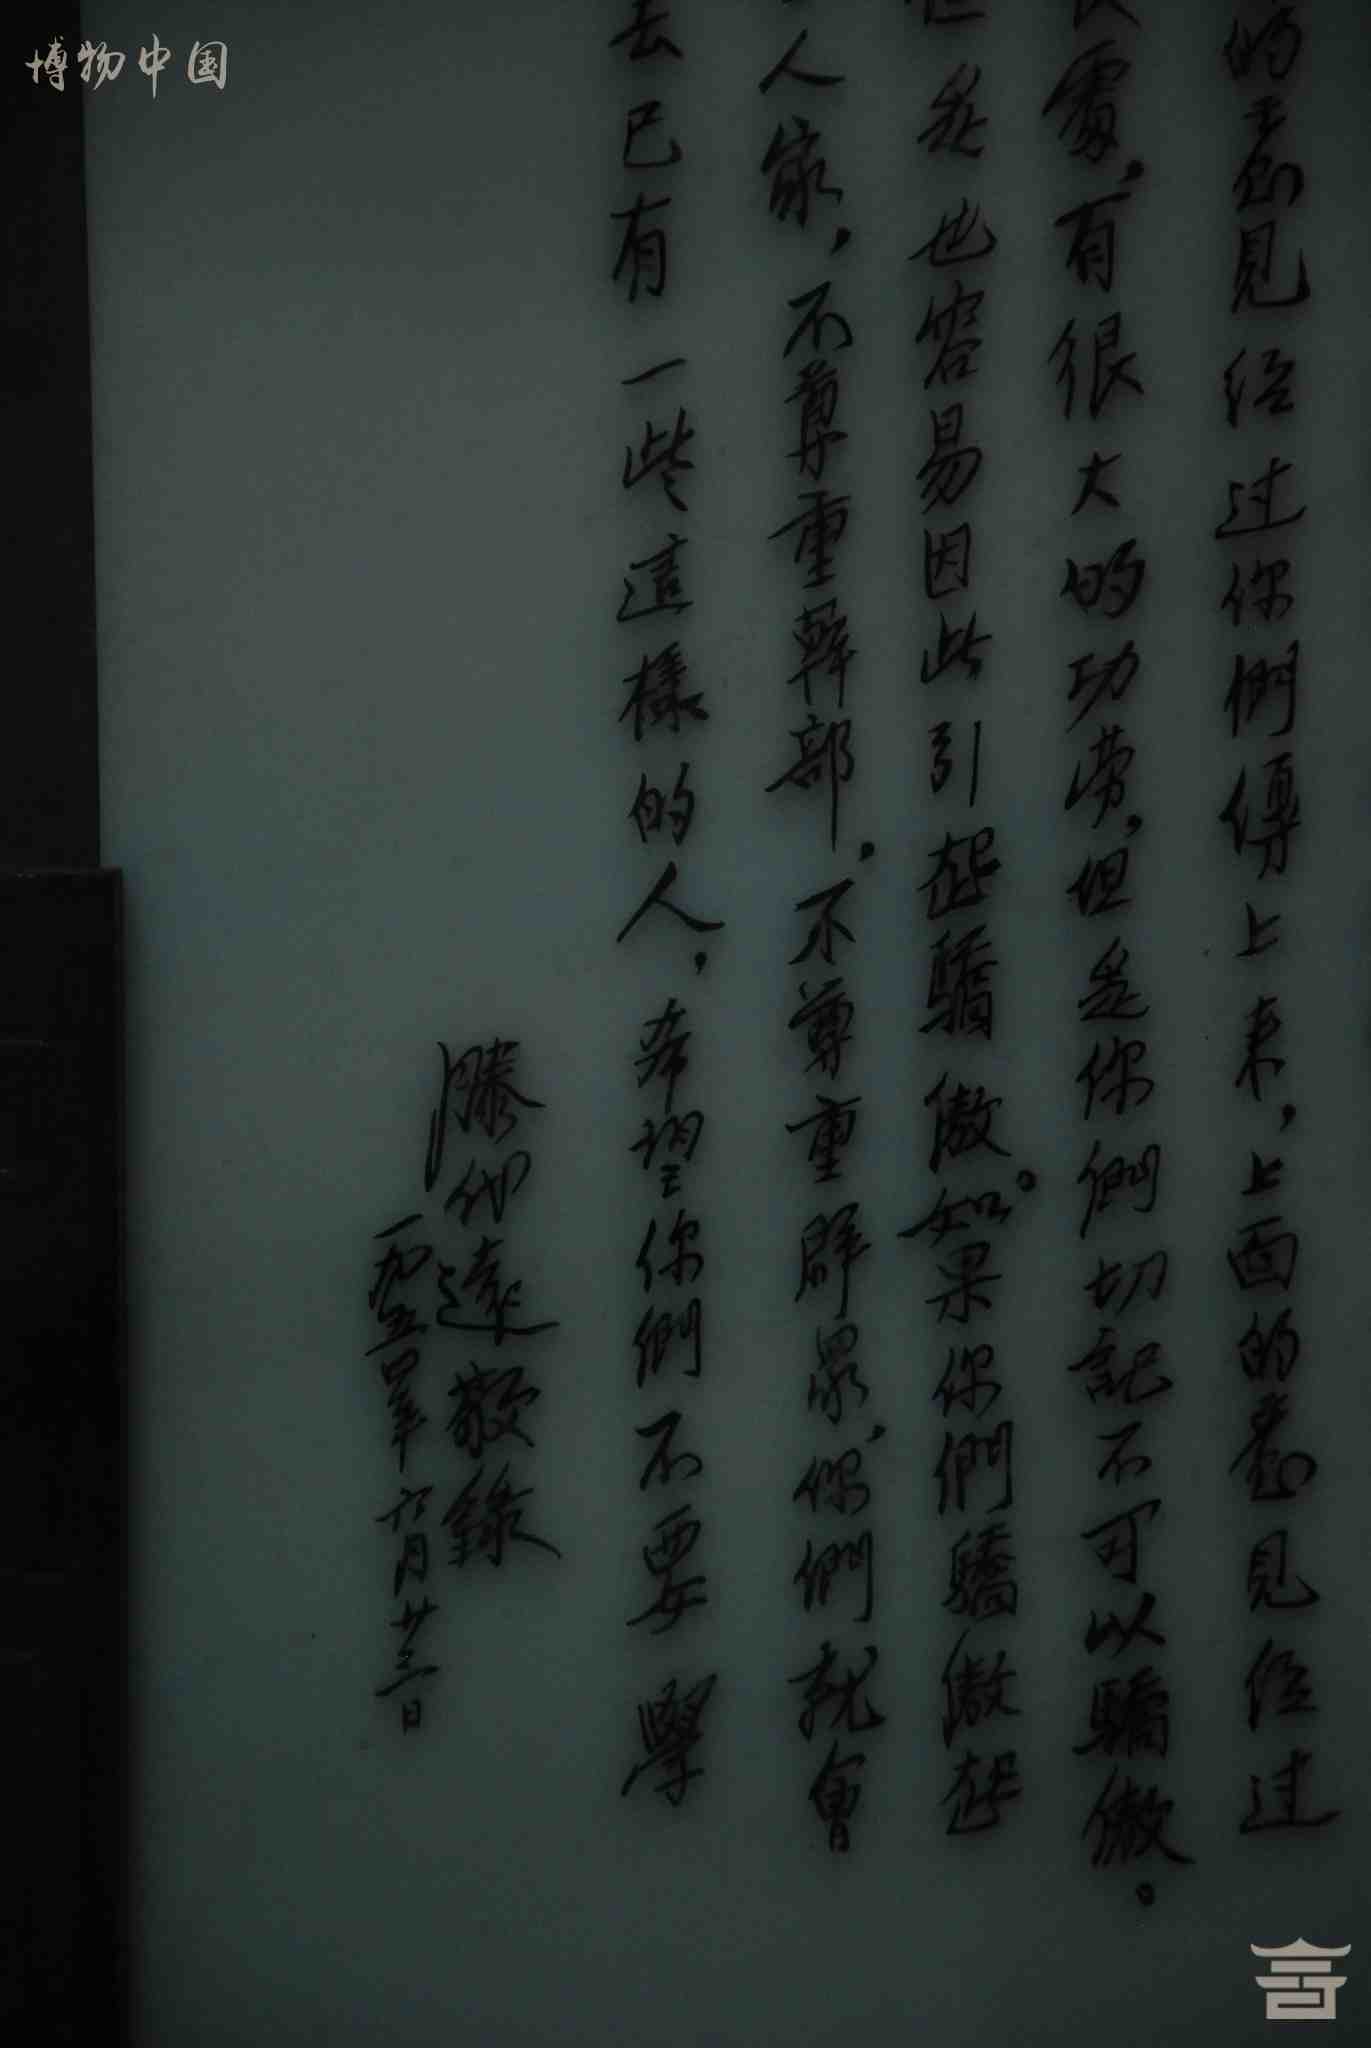 博物中国
的意见经过你們傳上来，上面的意见经过
有很大的功劳，但是你們切記不可以驕傲。
是也容易因此引起驕傲。如果你們驕傲起
人家，不尊重幹部，不尊重群众，你們就會
去已有一些這樣的人，希望你們不要學
滕代遠敬錄
一九五四年六月廿二日